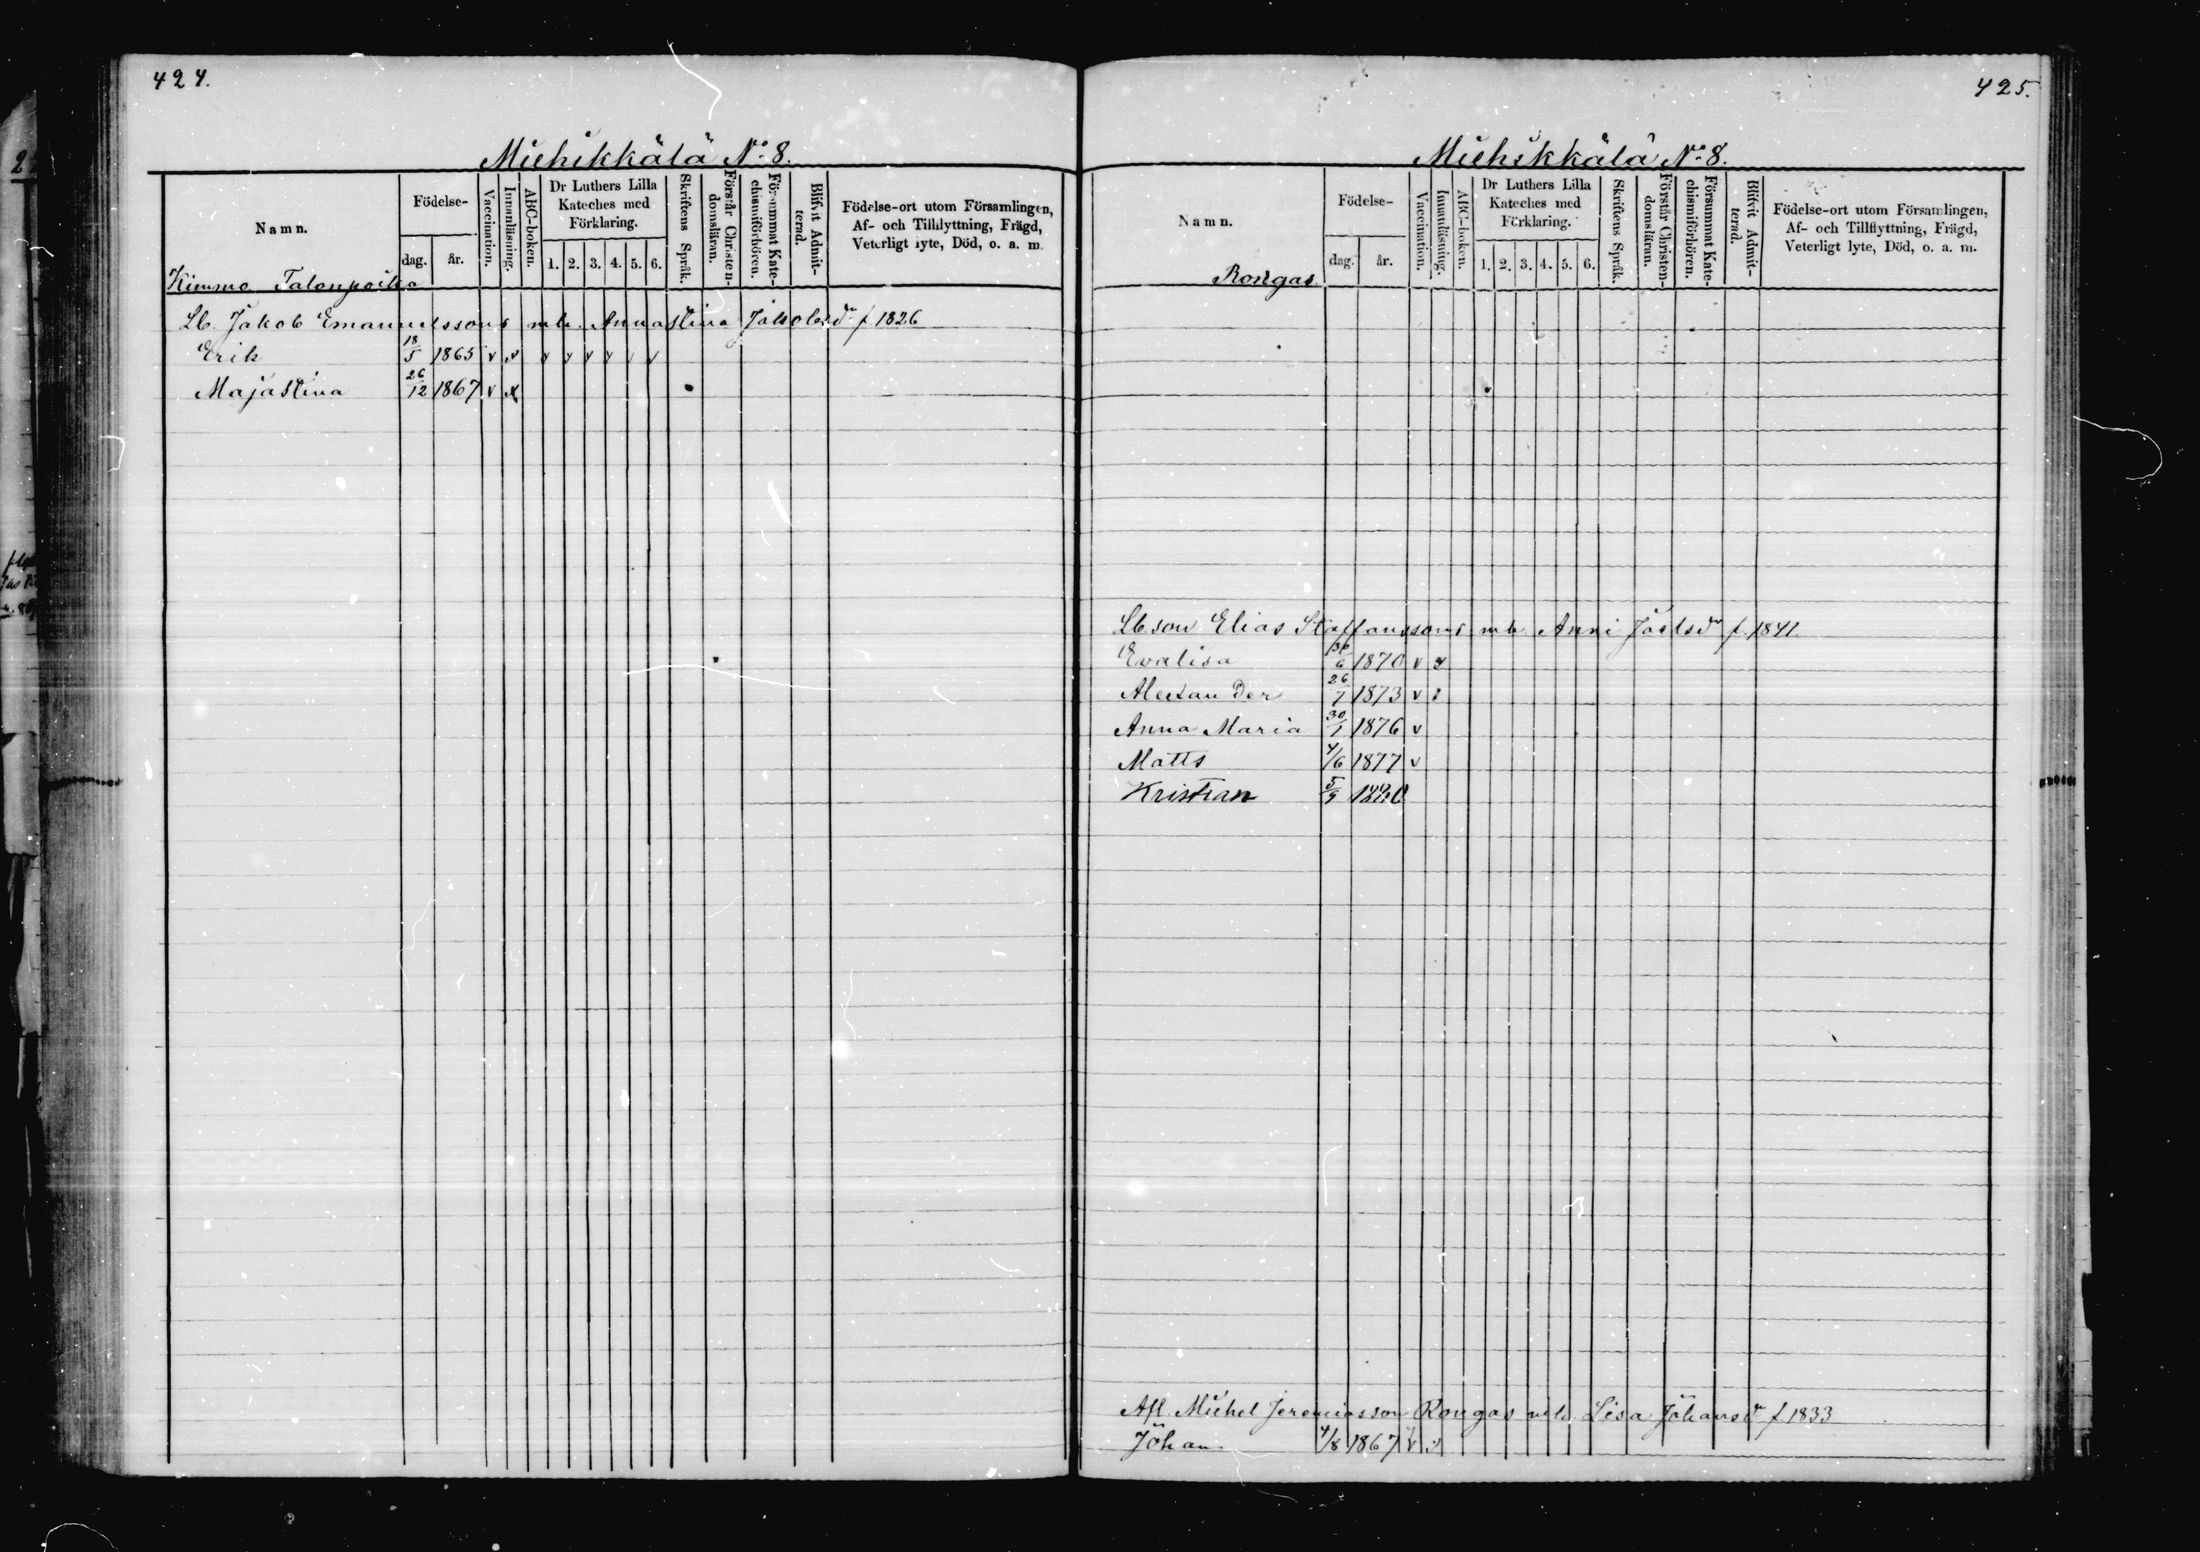 424.
Miehikkälä No. 8.
Namn.
Födelse-
dag.
år.
Vaccination.
Innanläsning.
ABC-boken.
Dr Luthers Lilla
Kateches med
Förklaring.
1. 2. 3. 4. 5. 6.
Skriftens Språk.
Förstår Christen-
domsläran.
Försummat Kate-
chismiförhören.
Blifvit Admit-
terad.
Födelse-ort utom Församlingen,
Af- och Tillflyttning, Frägd,
Veterligt lyte, Död, o. a. m.
Kimmo Talonpoika
Lb. Jakob Emanuelssons mh. Annastina Jakobsdr f. 1826
Erik 18/5 1865 v v v v v v v v
Majastina 26/12 1867 v x
425.
Miehikkälä No. 8.
Namn.
Födelse-
dag.
år.
Vaccination.
Innanläsning.
ABC-boken.
Dr Luthers Lilla
Kateches med
Förklaring.
1. 2. 3. 4. 5. 6.
Skriftens Språk.
Förstår Christen-
domsläran.
Försummat Kate-
chismiförhören.
Blifvit Admit-
terad.
Födelse-ort utom Församlingen,
Af- och Tillflyttning, Frägd,
Veterligt lyte, Död, o. a. m.
Rongas.
Lb. son Elias Staffanssons mh. Anni Jöelsdr f. 1841.
Evalisa 1870 v v
Alexander 26/7 1873 v
Anna Maria 30/1 1876 v
Matts 4/6 1877 v
Kristian 5/9
Afl. Michel Jeremiasson Rongas mh. Lisa Johansdr f 1833
Johan 4/8 1867 v v